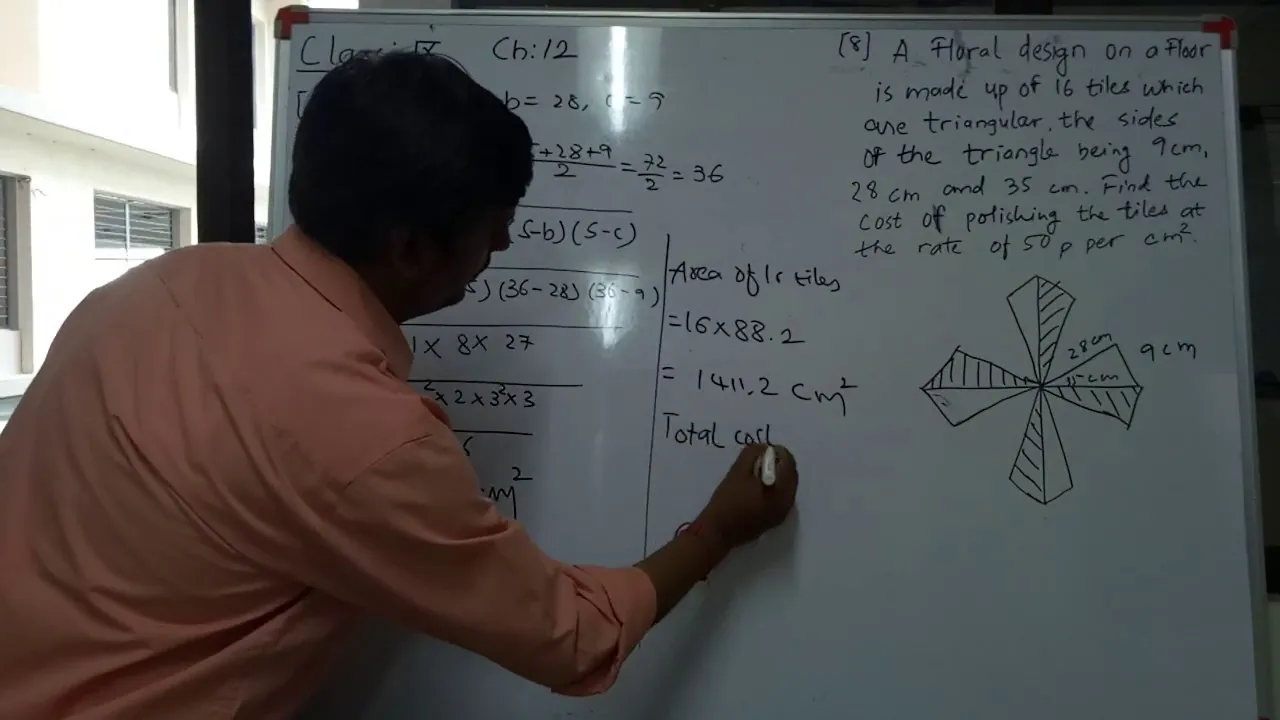 Class: IX Ch: 12
b = 28, c = 9
+28+9/2 = 72/2 = 36
S-b) (S-c)
) (36-28) (36-9)
1 × 8 × 27
² × 2 × 3² × 3
6
cm²
Area of 1r tiles
= 16 × 88.2
= 1411.2 cm²
Total cost
[8] A Floral design on a Floor
is made up of 16 tiles which
are triangular, the sides
of the triangle being 9cm,
28 cm and 35 cm. Find the
cost of polishing the tiles at
the rate of 50 p per cm².
28cm
9cm